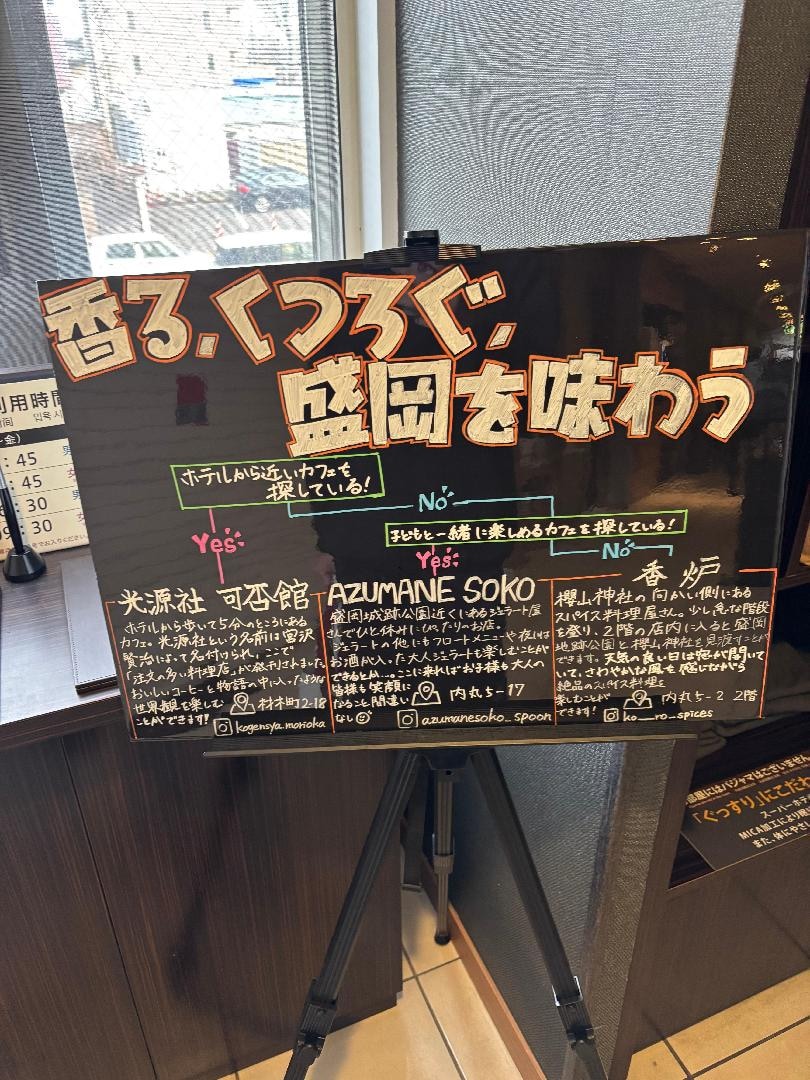 香る、くつろぐ、
盛岡を味わう
ホテルから近いカフェを
探している!
No
子どもと一緒に楽しめるカフェを探している!
Yes
Yes
No
光源社 可否館
ホテルから歩いて5分のところにある
カフェ。光源社という名前は宮沢
賢治によって名付けられ、ここで
「注文の多い料理店」が発刊されました。
おいしいコーヒーと物語の中に入ったような
世界観を楽しむ
ことができます!
材木町2-18
kogensya.morioka
AZUMANE SOKO
盛岡城跡公園近くにあるジェラート屋
さんでひと休みにぴったりのお店。
ジェラートの他にもフロートメニューや夜には
お酒が入った大人ジェラートも楽しむことが
できるとか...ここに来ればお子様も大人の
皆様も笑顔に
なること間違い
なし
内丸5-17
azumanesoko_spoon
香炉
櫻山神社の向かい側にある
スパイス料理屋さん。少し急な階段
を登り、2階の店内に入ると盛岡
城跡公園と櫻山神社を見渡すことが
できます。天気の良い日は窓が開いて
いて、さわやかな風を感じながら
絶品のスパイス料理を
楽しむことが
できます!
内丸5-2 2階
ko__ro_spices
利用時間
입욕 시
金)
:45
:45
:30
:30
部屋にはパジャマはございません
「ぐっすり」にこだわ
スーパーホテ
MICA加工により
また、体にやさし